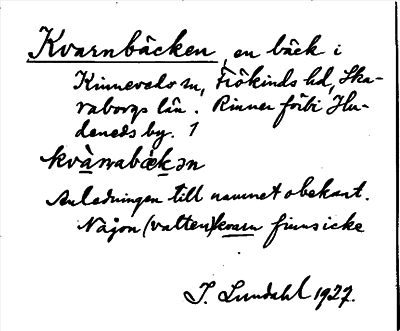 Kvarnbäcken, en bäck i
Kinneveds sn, Frökinds hd, Ska-
raborgs län. Rinner förbi Hu-
deneds by. 1
kvà̱rnabæ̀kən
Anledningen till namnet obekant.
Någon (vatten)kvarn finns icke
I. Lundahl 1927.